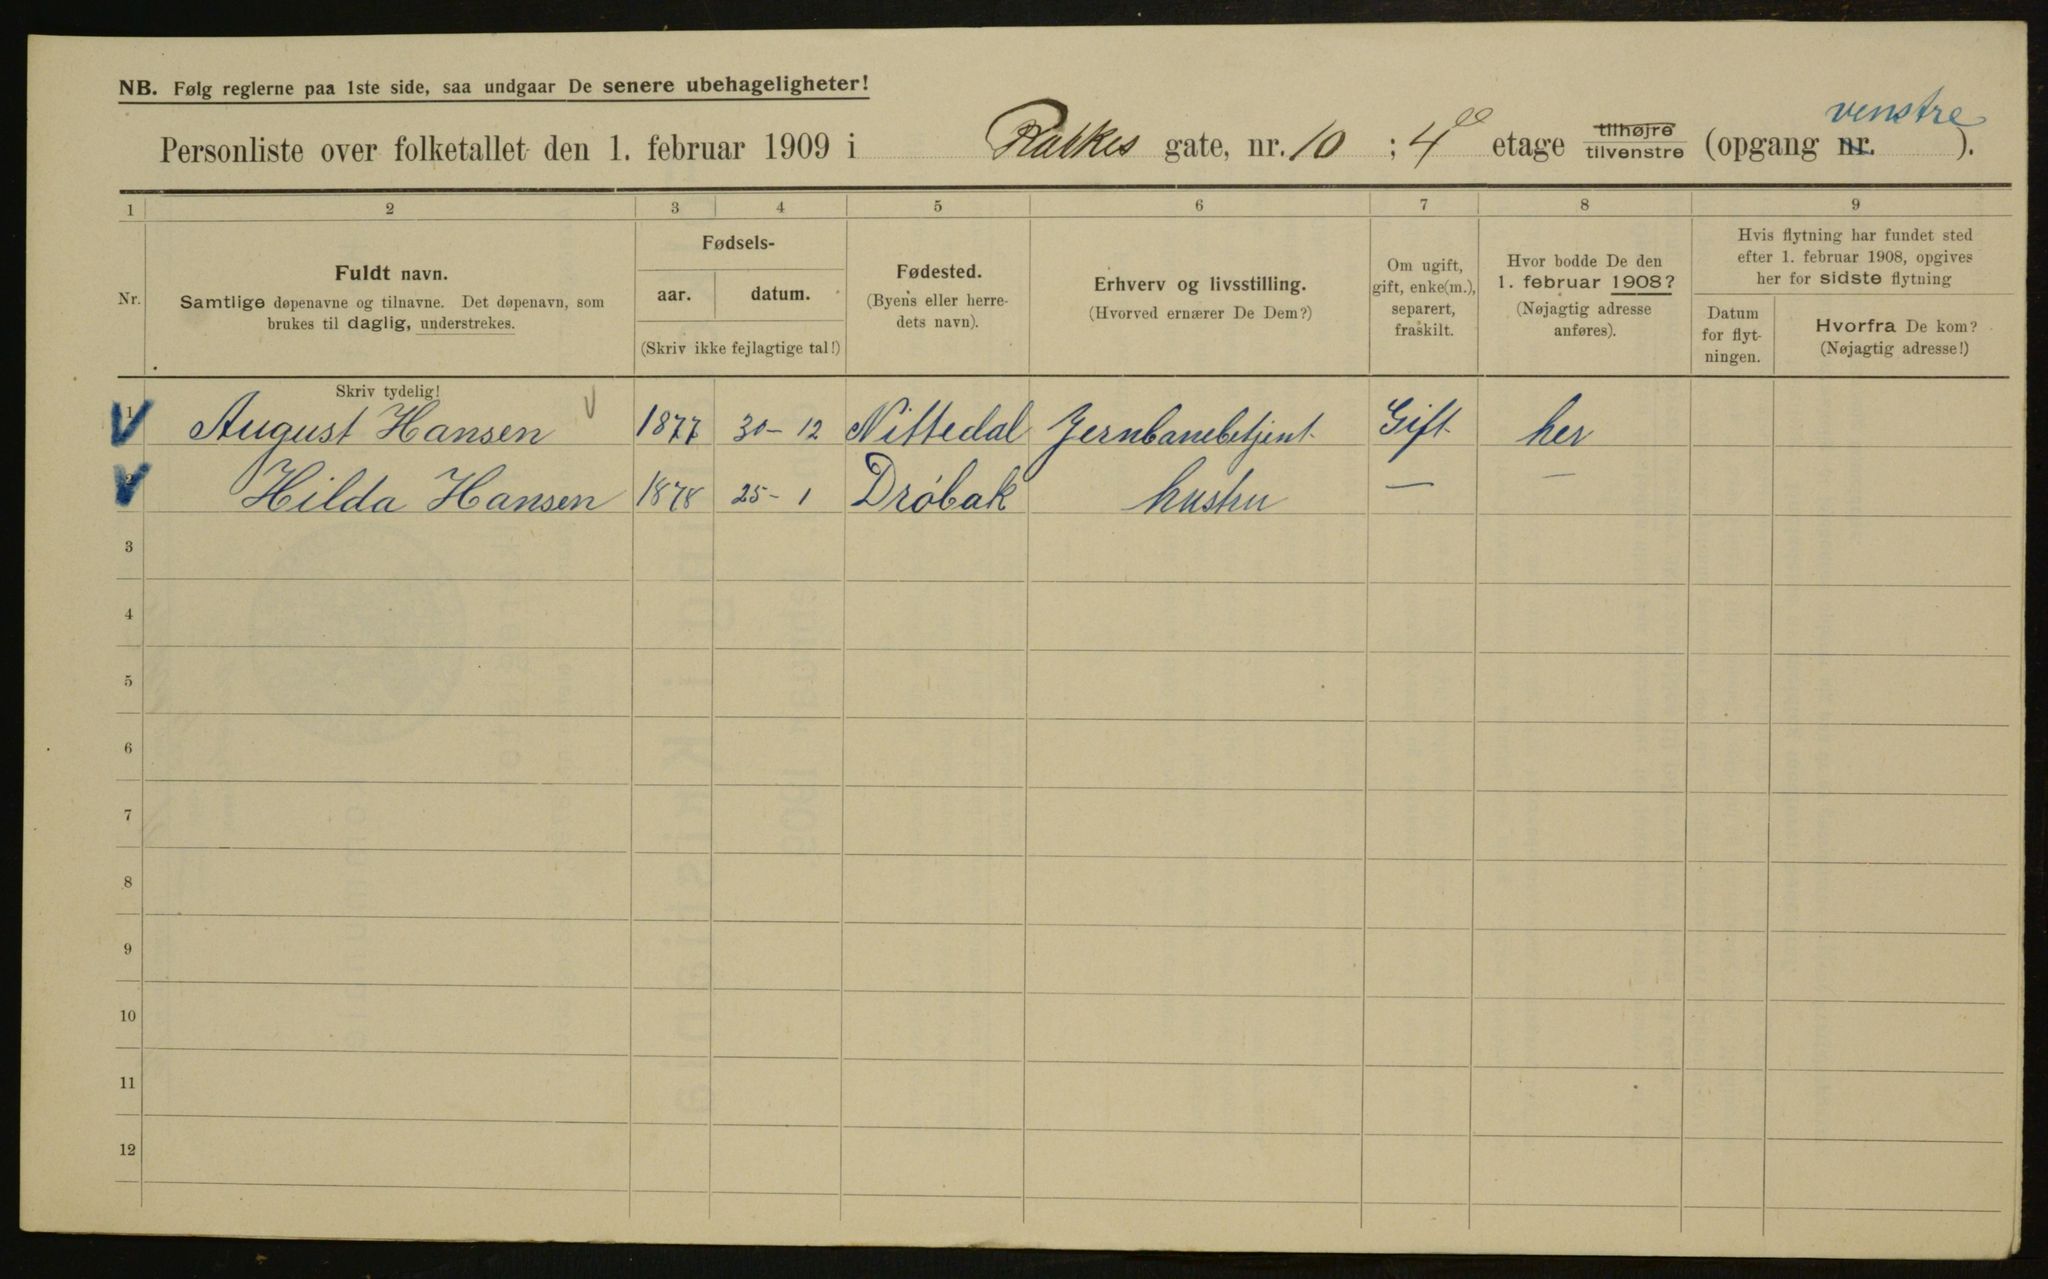 NB. Følg reglerne paa 1ste side, saa undgaar De senere ubehageligheter!
venstre
Personliste over folketallet den 1. februar 1909 i Rathkes gate, nr. 10 ; 4de etage tilhøjre tilvenstre (opgang nr. ).
1 2 3 4 5 6 7 8 9
Nr.
Fuldt navn.
Samtlige døpenavne og tilnavne. Det døpenavn, som
brukes til daglig, understrekes.
Fødsels-
aar. datum.
(Skriv ikke fejlagtige tal!)
Fødested.
(Byens eller herre-
dets navn).
Erhverv og livsstilling.
(Hvorved ernærer De Dem?)
Om ugift,
gift, enke(m.),
separert,
fraskilt.
Hvor bodde De den
1. februar 1908?
(Nøjagtig adresse
anføres).
Hvis flytning har fundet sted
efter 1. februar 1908, opgives
her for sidste flytning
Datum
for flyt-
ningen.
Hvorfra De kom?
(Nøjagtig adresse!)
Skriv tydelig!
1 August Hansen 1877 30-12 Nittedal Jernbanebetjent. Gift. her
2 Hilda Hansen 1878 25-1 Drøbak hustru — —
3
4
5
6
7
8
9
10
11
12